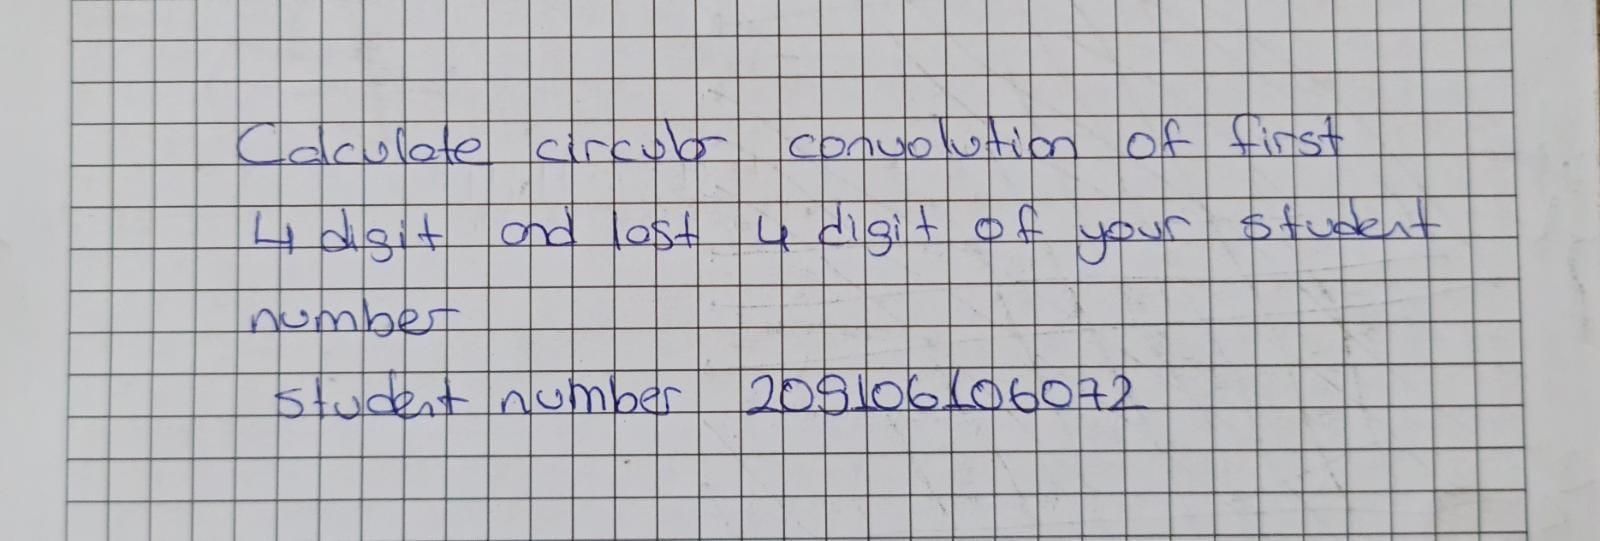 Calculate circular convolution of first
4 digit and last 4 digit of your student
number
student number 209106106072